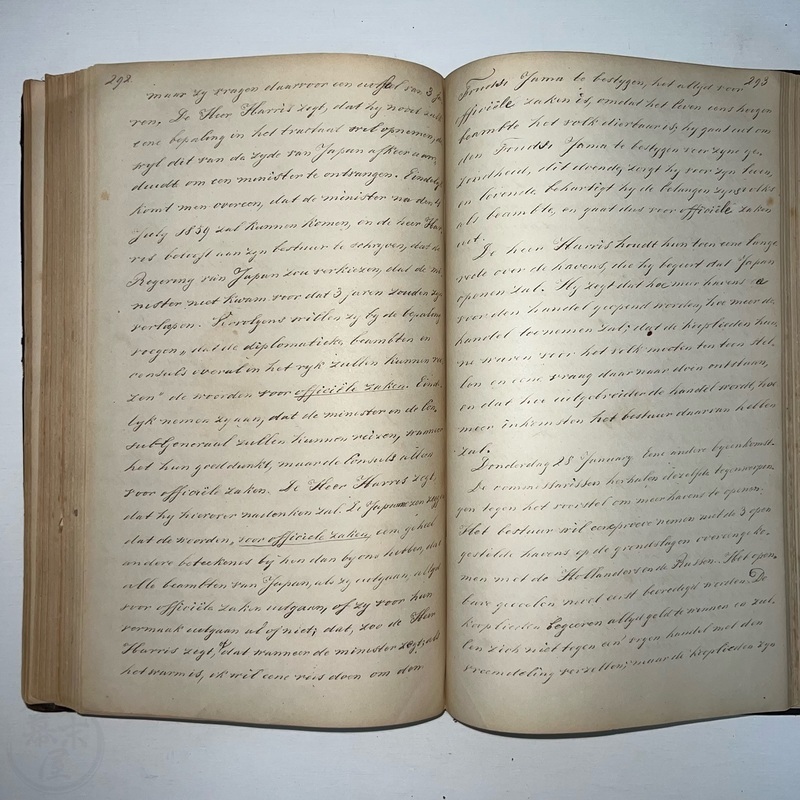 292
maar zy vragen daarvoor een uitstel van 3 ja
ren. De Heer Harris zegt, dat hy nooit zulk
eene bepaling in het tractaat wil opnemen,
wyl dit van de zyde van Japan afkeer aan
duidt om een minister te ontvangen. Eindelyk
komt men overeen, dat de minister na den
July 1859 zal kunnen komen, en de heer Har
ris belooft aan zyn bestuur te schryven, dat de
Regering van Japan zou verkiezen, dat de mi
nister niet kwam voor dat 3 jaren zouden zyn
verlopen. Vervolgens willen zy by de bepaling
voegen, dat de diplomatieke beambten en
consuls overal in het ryk zullen kunnen rei
zen" de woorden voor officiële zaken. Einde
lyk nemen zy aan, dat de minister en de Con
sul-Generaal zullen kunnen reizen, wanneer
het hun goeddunkt, maar de Consuls alleen
voor officiële zaken. De Heer Harris zegt,
dat hy hierover nadenken zal. De Japannezen zeggen
dat de woorden, voor officiele zaken, een geheel
andere beteekenis by hen dan by one hebben, dat
alle beambten van Japan, als zy uitgaan, altyd
voor officiële zaken uitgaan, of zy voor hun
vermaak uitgaan al of niet; dat, zoo de Heer
Harris zegt, dat wanneer de minister zegt, als
het warm is, ik wil eene reis doen om den
293
Foudsi Jama te bestygen, het altyd voor
officiële zaken is, omdat het leven eens hoogen
beambte het volk dierbaar is; hy gaat uit om
den Foudsi Jama te bestygen voor zyne ge
zondheid, dit doende, zorgt hy voor zyn leven,
en levende behartigt hy de belangen zyns volks
als beambte, en gaat dus voor officiële zaken
uit.
De heer Harris houdt hun toen eene lange
rede over de havens, die hy begeert dat Japan
openen zal. Hy zegt dat hoe meer havens er
voor den handel geopend worden, hoe meer de
handel toenemen zal; dat de kooplieden hun
ne waren voor het volk moeten ten toon stel
len en eene vraag daar naar doen ontstaan,
en dat hoe uitgebreider de handel wordt, hoe
meer inkomsten het bestuur daarvan hebben
zal.
Donderdag 28 January Eene andere byeenkomst.
De commissarissen herhalen dezelfde tegenwerpin
gen tegen het voorstel om meer havens te openen.
Het bestuur wil eene proeve nemen met de 3 open
gestelde havens op de grondslagen overeengeko
men met de Hollanders en de Russen. Het open
bare gevoelen moet eerst bevredigd worden. De
kooplieden begeeren altyd geld te winnen en zul
len zich niet tegen een' vryen handel met den
vreemdeling verzetten; maar de kooplieden zyn